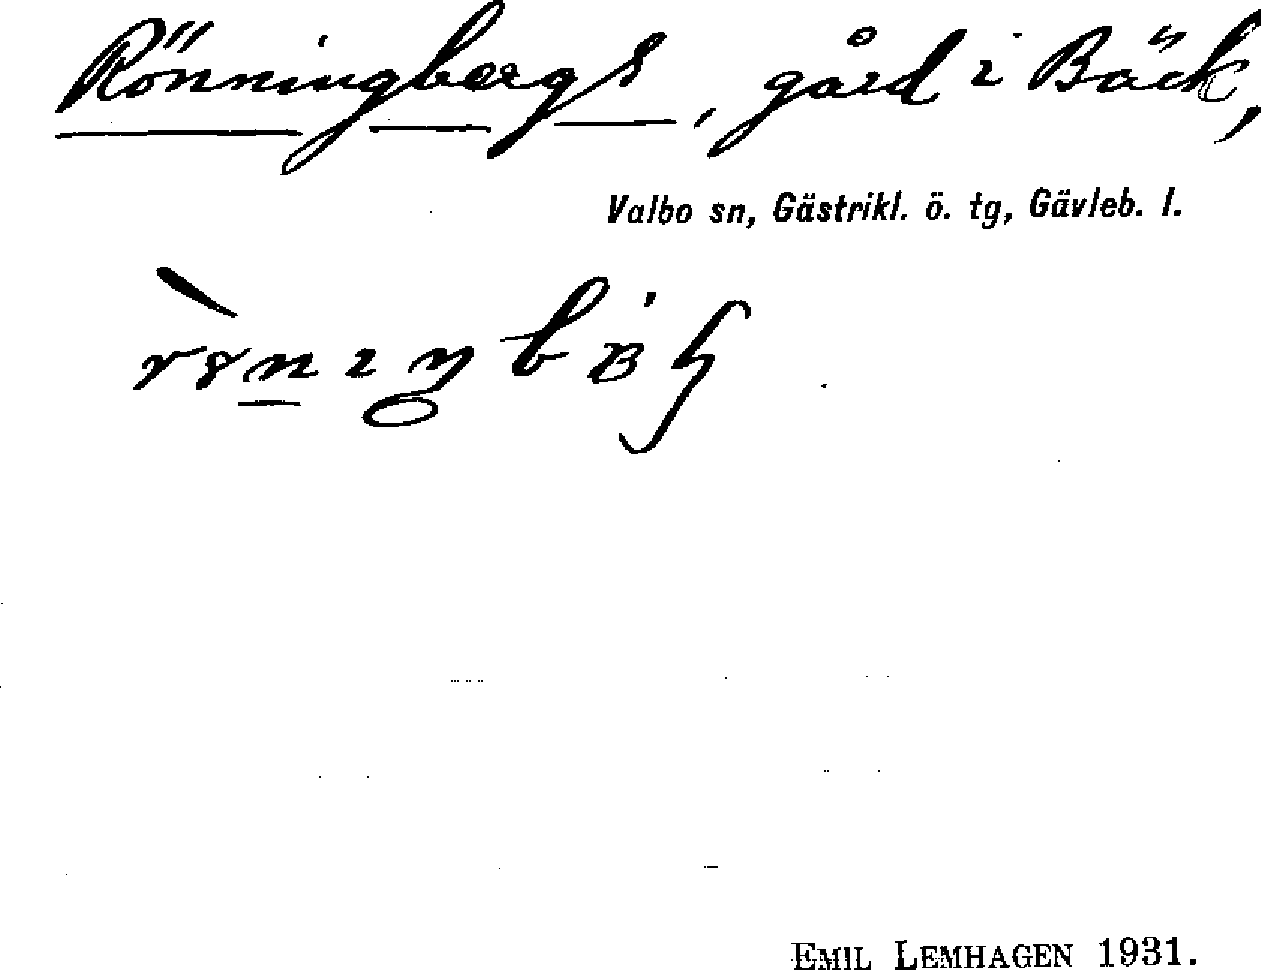 Rönningbergs, gård i Bäck,
Valbo sn, Gästrikl. ö. tg, Gävleb. l.
EMIL LEMHAGEN 1931.